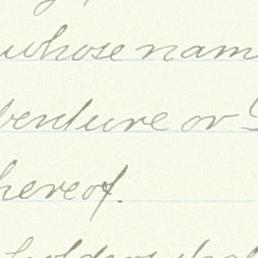 whose nam
benture or
hereof.